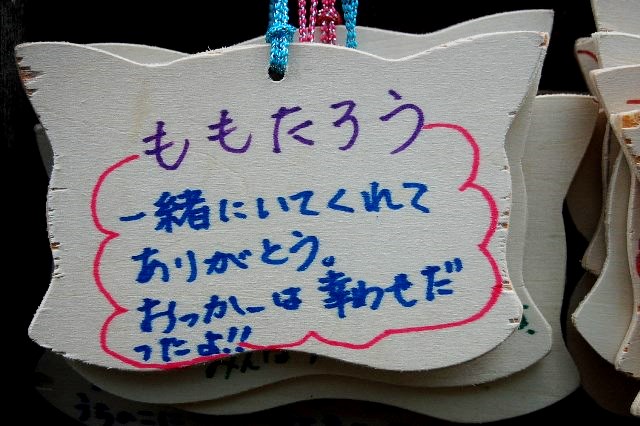 ももたろう
一緒にいてくれて
ありがとう。
おっかーは幸わせだ
ったよ!!
うちのこに